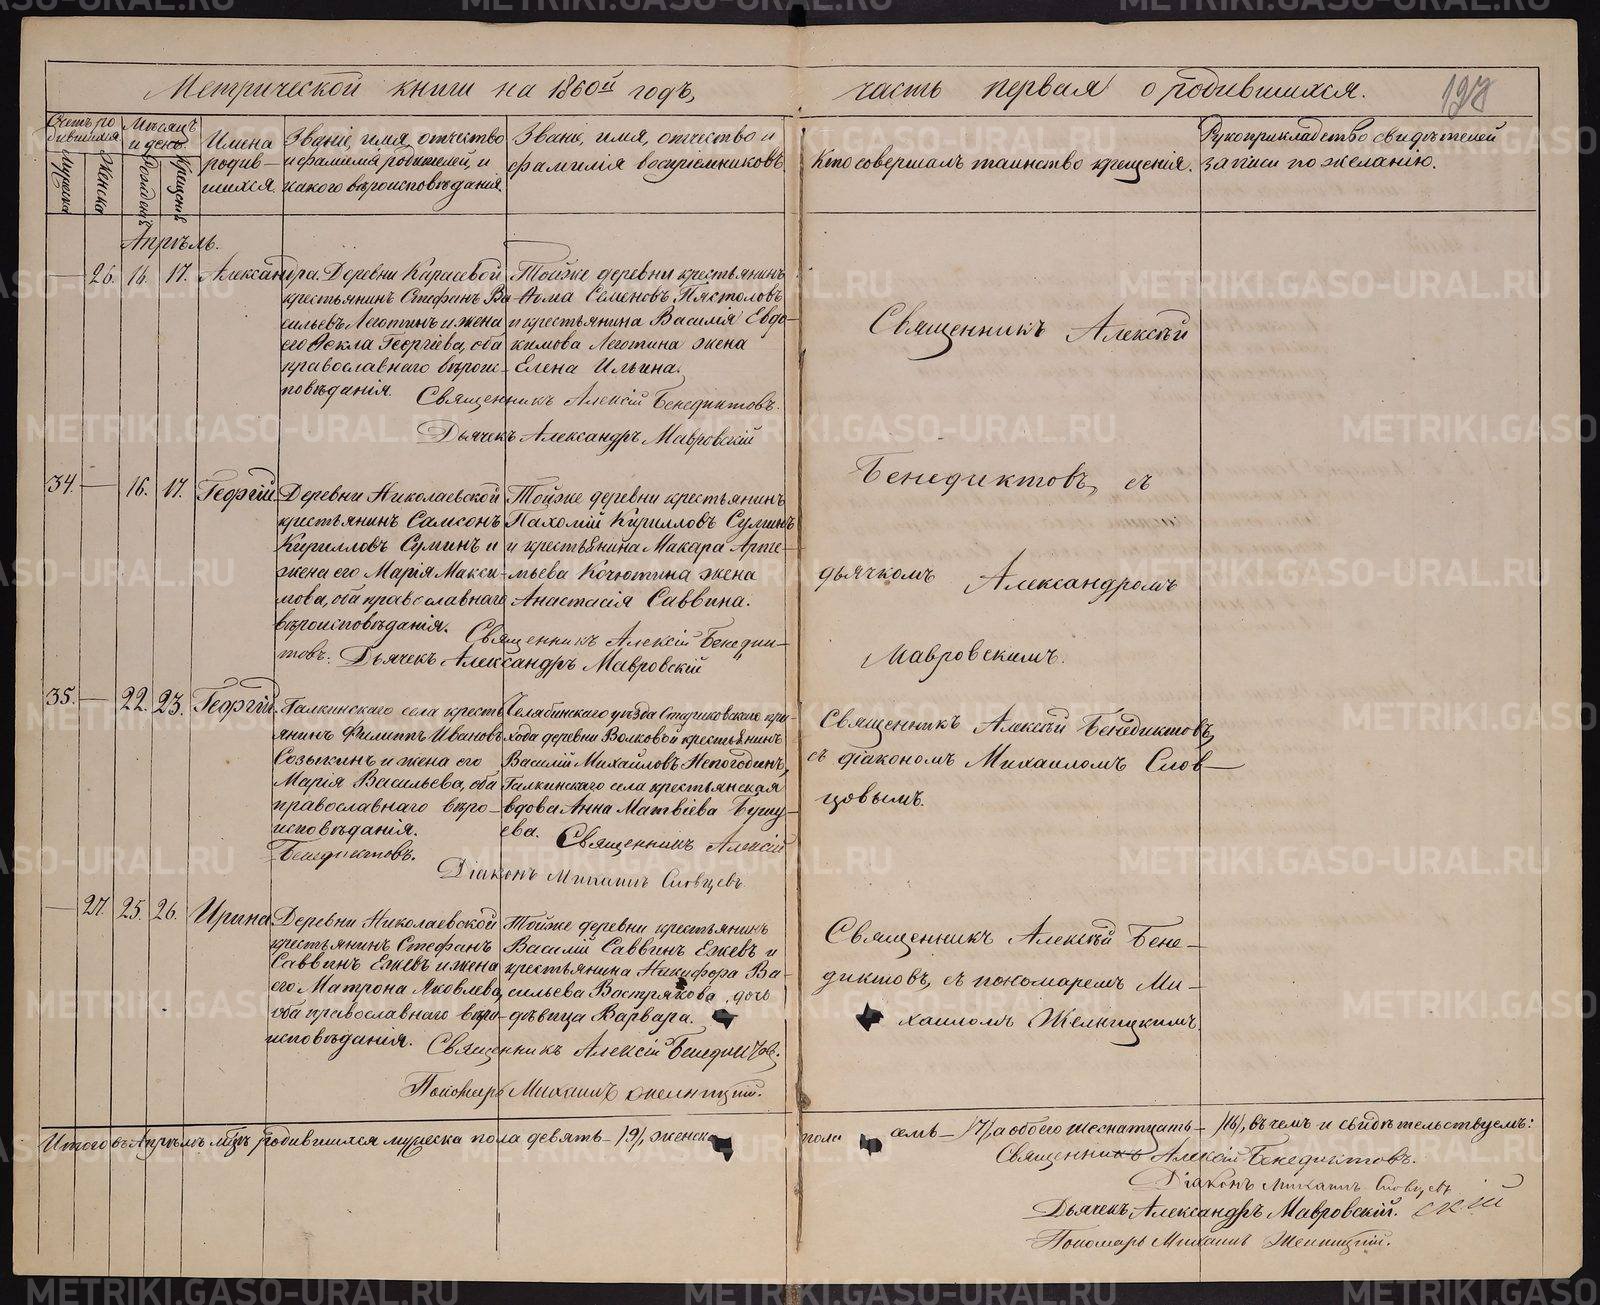 Метрической книги на 1860й годъ, часть первая о родившихся.
198
Счетъ родившихся
Мужеска
Женска
Мѣсяцъ и день
Рожденія
Крещенія
Имена
родив-
шихся.
Званіе, имя, отчество
и фамилія родителей, и
какого вѣроисповѣданія
Званіе, имя, отчество и
фамилія воспріемниковъ.
Кто совершалъ таинство крещенія.
Рукоприкладство свидѣтелей
записи по желанію.
Апрѣль.
— 26. 16. 17. Александра.
Деревни Карасевой
крестьянинъ Стефанъ Ва-
сильевъ Леготинъ и жена
его Ѳекла Георгіева, оба
православнаго вѣроис-
повѣданія.
Тойже деревни крестьянинъ
Ѳома Семеновъ Пястоловъ
и крестьянина Василія Евдо-
кимова Леготина жена
Елена Ильина.
Священникъ Алексій Бенедиктовъ.
Дьячекъ Александръ Мавровскій
Священникъ Алексѣй
Бенедиктовъ, съ
дьячкомъ Александромъ
Мавровскимъ.
34. — 16. 17. Георгій
Деревни Николаевской
крестьянинъ Самсонъ
Кирилловъ Суминъ и
жена его Марія Макси-
мова, оба православнаго
вѣроисповѣданія.
Тойже деревни крестьянинъ
Пахомій Кирилловъ Суминъ
и крестьянина Макара Арте-
мьева Кочютина жена
Анастасія Саввина.
Священникъ Алексій Бенедик-
товъ. Дьячекъ Александръ Мавровскій
35. — 22. 23. Георгій.
Галкинскаго села кресть-
янинъ Филиппъ Ивановъ
Созыкинъ и жена его
Марія Васильева, оба
православнаго вѣро-
исповѣданія.
Челябинскаго уѣзда при-
хода деревни Волковой крестьянинъ
Василій Михайловъ Непогодинъ,
Галкинскаго села крестьянская
вдова Анна Матвіева Бушу-
ева. Священникъ Алексій
Бенедиктовъ.
Діаконъ Михаилъ Словцевъ
Священникъ Алексѣй Бенедиктовъ,
съ діакономъ Михаиломъ Слов-
цовымъ.
— 27. 25. 26. Ирина
Деревни Николаевской
крестьянинъ Стефанъ
Саввинъ Ежевъ и жена
его Матрона Яковлева,
оба православнаго вѣро-
исповѣданія.
Тойже деревни крестьянинъ
Василій Саввинъ Ежевъ и
крестьянина Никифора Ва-
сильева Вострякова дочь
дѣвица Варвара.
Священникъ Алексій Бенедиктовъ.
Пономарь Михаилъ Желницкій.
Священникъ Алексѣй Бене-
диктовъ, съ пономаремъ Ми-
хаиломъ Желницкимъ.
Итого въ Апрѣлѣ мцѣ родившихся мужеска пола девять — /9/, женска пола семь — /7/, а обоего шеснатцать — /16/, въ чемъ и свидѣтельствуемъ:
Священникъ Алексій Бенедиктовъ.
Діаконъ Михаилъ Словцевъ
Дьячекъ Александръ Мавровскій. скій
Пономарь Михаилъ Желницкій.
METRIKI.GASO-URAL.RU